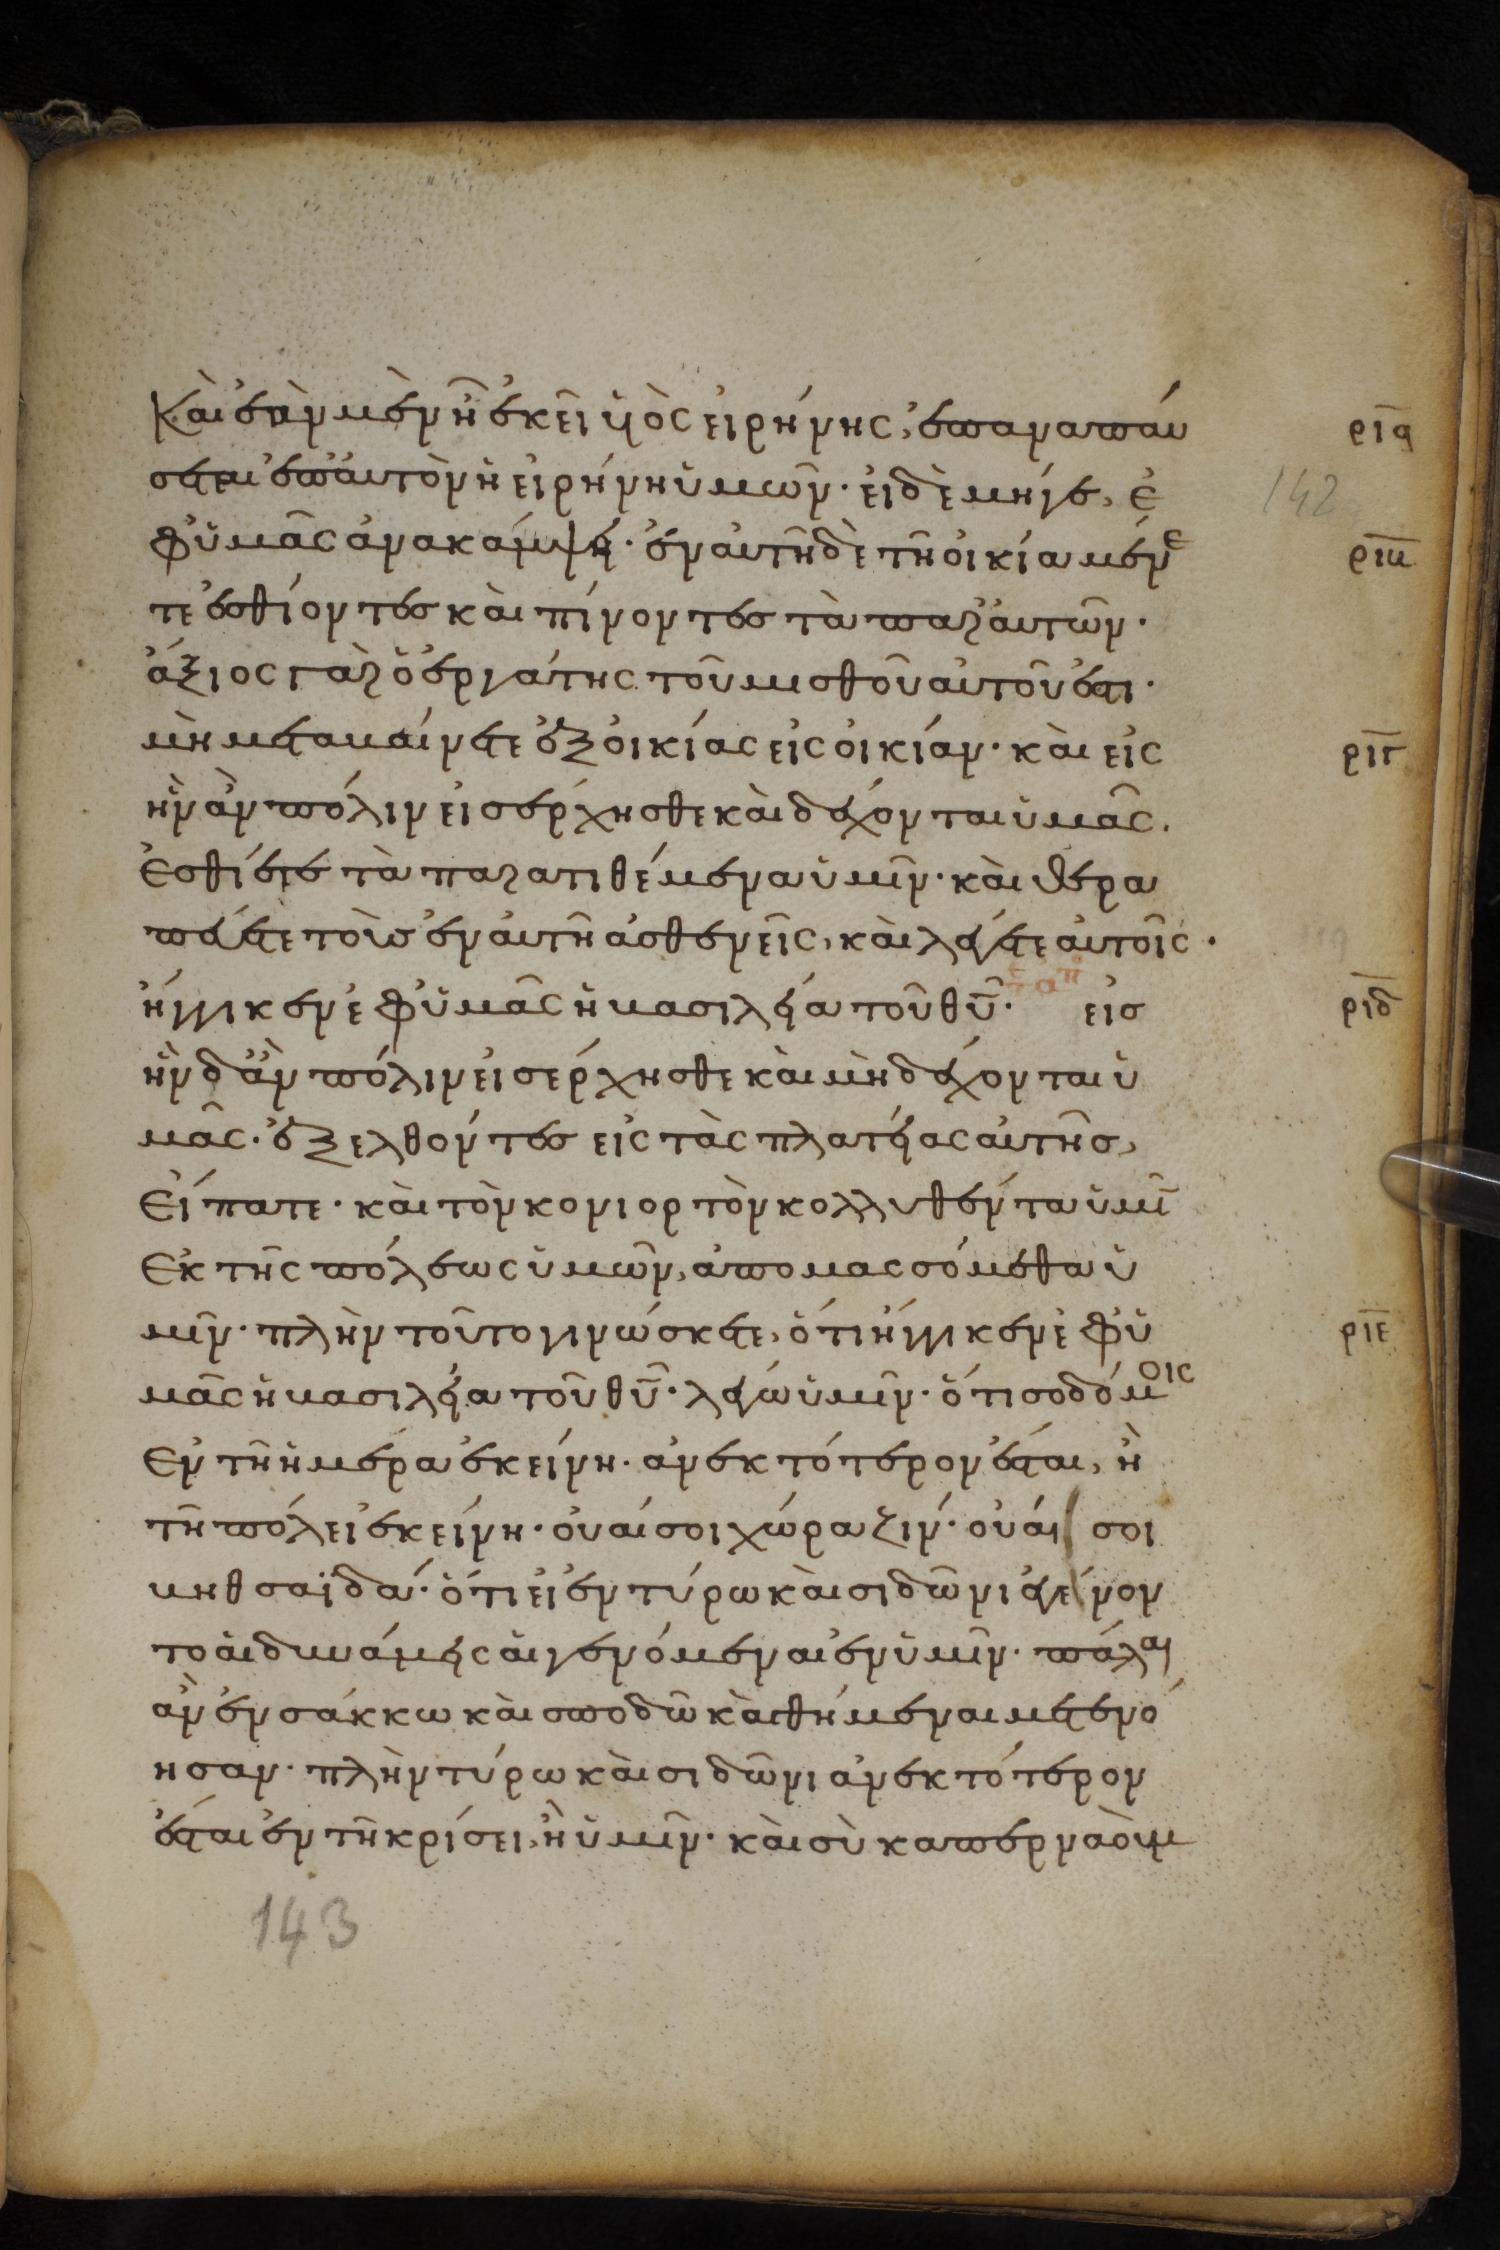 Καὶ ἐὰν μὲν ἦ ἐκεῖ υἱὸς εἰρήνης, ἐπαναπαύ ρια
σεται ἐπ' αὐτὸν ἡ εἰρήνη ὑμῶν· εἰ δὲ μήγε, ἐ 142
φ' ὑμᾶς ἀνακάμψει· ἐν αὐτῆ δὲ τῆ οἰκία μένε ριβ
τε ἐσθίοντες καὶ πίνοντες τὰ παρ' αὐτῶν·
ἄξιος γὰρ ὁ ἐργάτης τοῦ μισθοῦ αὐτοῦ ἐστι·
μὴ μεταβαίνετε ἐξ οἰκίας εἰς οἰκίαν· καὶ εἰς ριγ
ἣν ἂν πόλιν εἰσέρχησθε καὶ δέχονται ὑμᾶς.
Ἐσθίετε τὰ παρατιθέμενα ὑμῖν· καὶ θερα
πεύετε τοὺς ἐν αὐτῆ ἀσθενεῖς, καὶ λέγετε αὐτοῖς·
ἤγγικεν ἐφ' ὑμᾶς ἡ βασιλεία τοῦ θυ· εἰσ ριδ
ἣν δ' ἂν πόλιν εἰσέρχησθε καὶ μὴ δέχονται ὑ
μᾶς· ἐξελθόντες εἰς τὰς πλατείας αὐτῆς,
Εἴπατε· καὶ τὸν κονιορτὸν κολλυθέντα ὑμῖ
Ἐκ τῆς πόλεως ὑμῶν, ἀπομασσόμεθα ὑ
μῖν· πλὴν τοῦτο γινώσκετε, ὅτι ἤγγικεν ἐφ' ὑ ριε
μᾶς ἡ βασιλεία τοῦ θυ· λέγω ὑμῖν· ὅτι σοδόμοις
Ἐν τῆ ἡμέρα ἐκείνη· ἀνεκτότερον ἔσται, ἢ
τῆ πόλει ἐκείνη· οὐαί σοι χώραζιν· οὐάι σοι
βηθσαϊδά· ὅτι εἰ ἐν τύρω καὶ σιδῶνι ἐγένον
το αἱ δυνάμεις αἱ γενόμεναι ἐν ὑμῖν· πάλαι
ἂν ἐν σάκκω καὶ σποδῶ καθήμεναι μετενό
ησαν· πλὴν τύρω καὶ σιδῶνι ἀνεκτότερον
ἔσται ἐν τῆ κρίσει, ἢ ὑμῖν· καὶ σὺ καπερναοὺμ
143